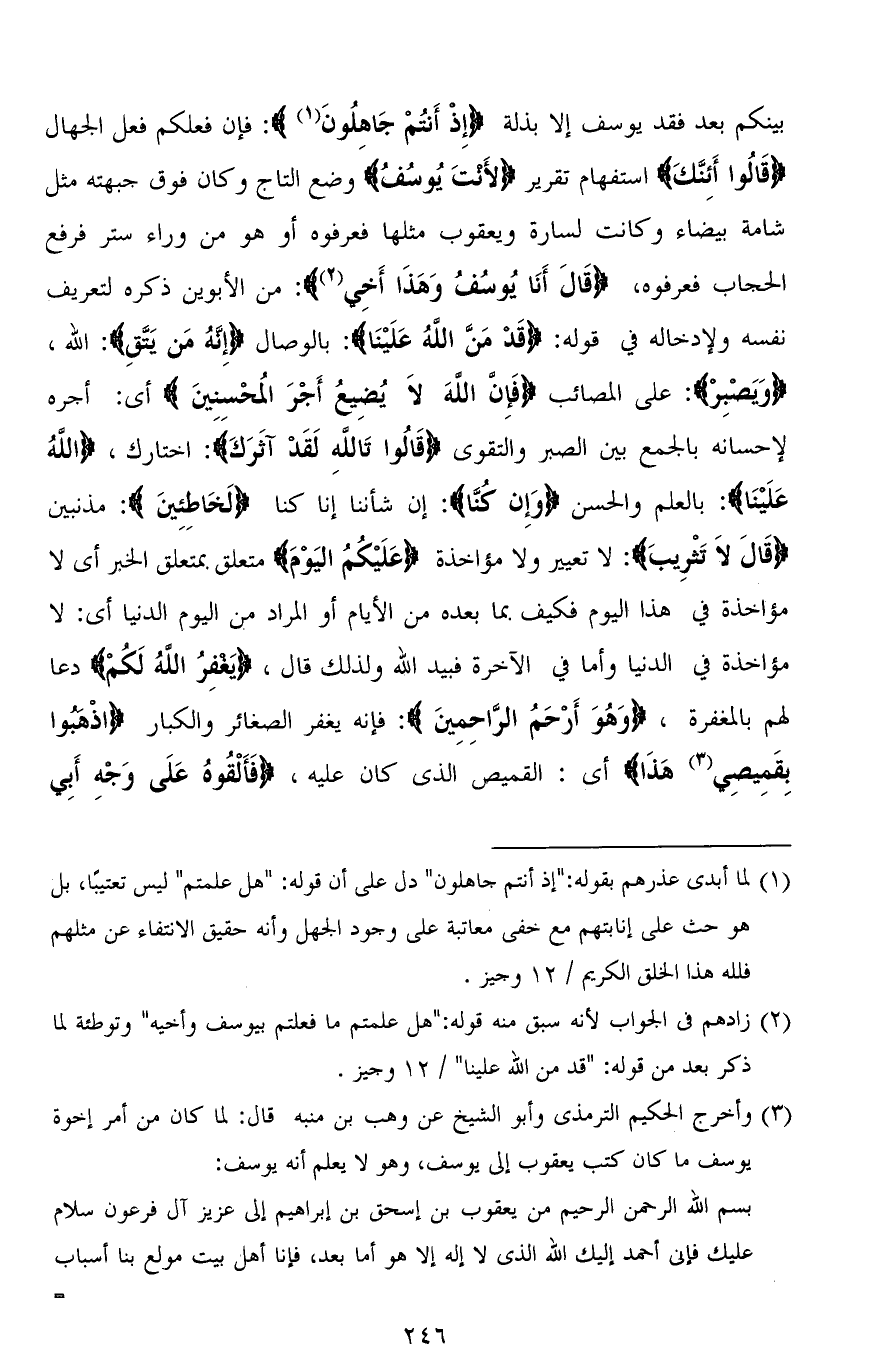 بينكم بعد فقد يوسف إلا بذلة ﴿إِذْ أَنتُمْ جَاهِلُونَ(١) ﴾: فإن فعلكم فعل الجهال
﴿قَالُوا أَئِنَّكَ﴾ استفهام تقرير ﴿لأَنْتَ يُوسُفُ﴾ وضع التاج وكان فوق جبهته مثل
شامة بيضاء وكانت لسارة ويعقوب مثلها فعرفوه أو هو من وراء ستر فرفع
الحجاب فعرفوه، ﴿قَالَ أَنَا يُوسُفُ وَهَذَا أَخِي(٢)﴾: من الأبوين ذكره لتعريف
نفسه ولإدخاله في قوله: ﴿قَدْ مَنَّ اللَّهُ عَلَيْنَا﴾: بالوصال ﴿إِنَّهُ مَن يَتَّقِ﴾: الله ،
﴿وَيَصْبِرْ﴾: على المصائب ﴿فَإِنَّ اللَّهَ لاَ يُضِيعُ أَجْرَ الْمُحْسِنِينَ ﴾ أى: أجره
لإحسانه بالجمع بين الصبر والتقوى ﴿قَالُوا تَاللَّهِ لَقَدْ آثَرَكَ﴾: اختارك ، ﴿اللَّهُ
عَلَيْنَا﴾: بالعلم والحسن ﴿وَإِن كُنَّا﴾: إن شأننا إنا كنا ﴿لَخَاطِئِينَ ﴾: مذنبين
﴿قَالَ لاَ تَثْرِيبَ﴾: لا تعيير ولا مؤاخذة ﴿عَلَيْكُمُ اليَوْمَ﴾ متعلق بمتعلق الخبر أى لا
مؤاخذة في هذا اليوم فكيف بما بعده من الأيام أو المراد من اليوم الدنيا أى: لا
مؤاخذة في الدنيا وأما في الآخرة فبيد الله ولذلك قال ، ﴿يَغْفِرُ اللَّهُ لَكُمْ﴾ دعا
لهم بالمغفرة ، ﴿وَهُوَ أَرْحَمُ الرَّاحِمِينَ ﴾: فإنه يغفر الصغائر والكبار ﴿اذْهَبُوا
بِقَمِيصِي(٣) هَذَا﴾ أى : القميص الذى كان عليه ، ﴿فَأَلْقُوهُ عَلَى وَجْهِ أَبِي
(١) لما أبدى عذرهم بقوله:"إذ أنتم جاهلون" دل على أن قوله: "هل علمتم" ليس تعتيبًا، بل
هو حث على إنابتهم مع خفى معاتبة على وجود الجهل وأنه حقيق الانتفاء عن مثلهم
فلله هذا الخلق الكريم / ١٢ وجيز .
(٢) زادهم فى الجواب لأنه سبق منه قوله:"هل علمتم ما فعلتم بيوسف وأخيه" وتوطئة لما
ذكر بعد من قوله: "قد من الله علينا" / ١٢ وجيز .
(٣) وأخرج الحكيم الترمذى وأبو الشيخ عن وهب بن منبه قال: لما كان من أمر إخوة
يوسف ما كان كتب يعقوب إلى يوسف، وهو لا يعلم أنه يوسف:
بسم الله الرحمن الرحيم من يعقوب بن إسحق بن إبراهيم إلى عزيز آل فرعون سلام
عليك فإنى أحمد إليك الله الذى لا إله إلا هو أما بعد، فإنا أهل بيت مولع بنا أسباب
=
٢٤٦